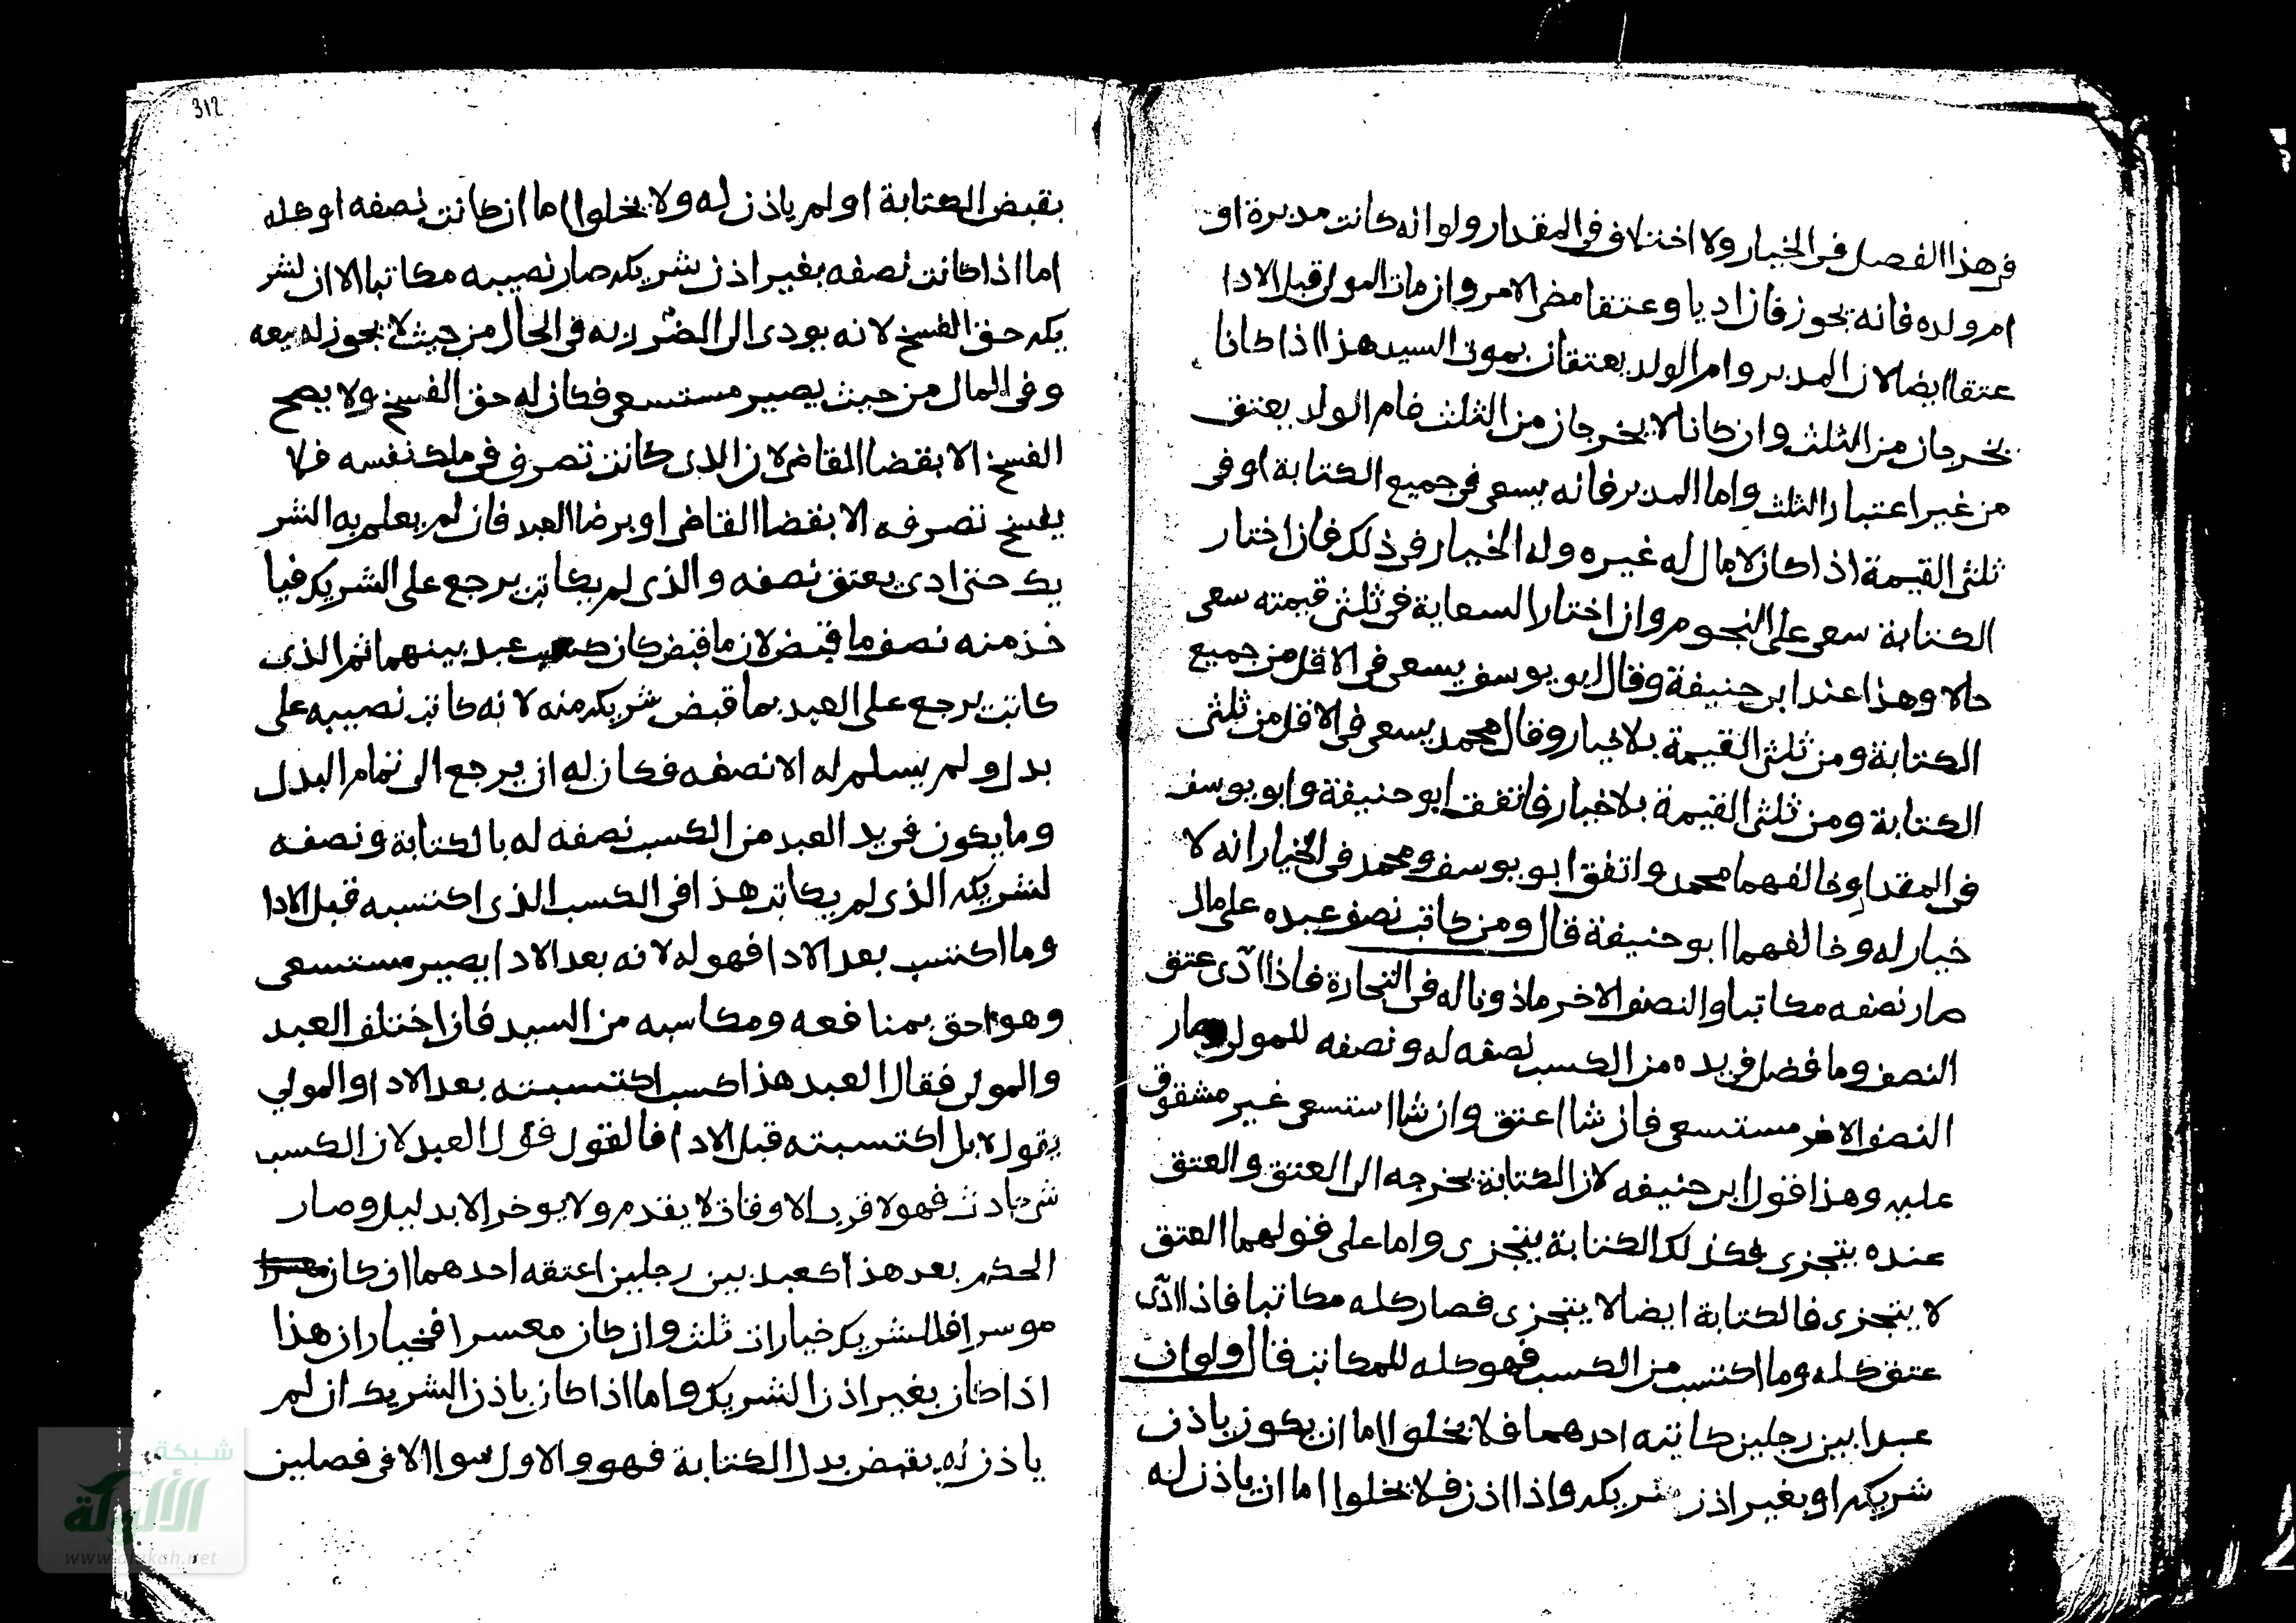 فى هذا الفصل فى الخيار ولا اختلاف فى المقدار ولو انه كانت مدبرة او
ام ولده فانه يجوز فان اديا وعتقا مضى الامر وان مات المولى قبل الادا
عتقا ايضا لان المدبر وام الولد يعتقان بموت السيد هذا اذا كانا
يخرجان من الثلث وان كانا لا يخرجان من الثلث فام الولد يعتق
من غير اعتبار الثلث واما المدبر فانه يسعى فى جميع الكتابة او فى
ثلثى القيمة اذا كان لا مال له غيره وله الخيار فى ذلك فان اختار
الكتابة سعى على النجوم وان اختار السعاية فى ثلثى قيمته سعى
حالا وهذا عند ابى حنيفة وقال ابو يوسف يسعى فى الاقل من جميع
الكتابة ومن ثلثى القيمة بلا خيار وقال محمد يسعى فى الاقل من ثلثى
الكتابة ومن ثلثى القيمة بلا خيار فاتفق ابو حنيفة وابو يوسف
فى المقدار وخالفهما محمد واتفق ابو يوسف ومحمد فى الخيار انه لا
خيار له وخالفهما ابو حنيفة قال ومن كاتب نصف عبده على مال
صار نصفه مكاتبا والنصف الاخر ماذونا له فى التجارة فاذا ادى عتق
النصف وما فضل فى يده من الكسب نصفه له ونصفه للمولى وصار
النصف الاخر مستسعى فان شا اعتق وان شا استسعى غير مشقوق
عليه وهذا قول ابى حنيفه لان الكتابة يخرجه الى العتق والعتق
عنده يتجزى فكذلك الكتابة يتجزى واما على قولهما العتق
لا يتجزى فالكتابة ايضا لا يتجزى فصار كله مكاتبا فاذا ادى
عتق كله وما اكتسب من الكسب فهو كله للمكاتب قال ولو ان
عبدا بين رجلين كاتبه احدهما فلا يخلوا اما ان يكون باذن
شريكه او بغير اذن شريكه واذا اذن فلا يخلوا اما ان ياذن له
312
بقبض الكتابة او لم ياذن له ولا يخلوا اما ان كاتب نصفه او كله
اما اذا كاتب نصفه بغير اذن شريكه صار نصيبه مكاتبا الا ان لشر
يكه حق الفسخ لانه يودى الى الضرر به فى الحال من حيث لا يجوز له بيعه
وفى المال من حيث يصير مستسعى فكان له حق الفسخ ولا يصح
الفسخ الا بقضا القاضى لان الذى كاتب تصرف فى ملك نفسه فلا
يفسخ تصرفه الا بقضا القاضى او برضا العبد فان لم يعلم به الشر
يك حتى ادى يعتق نصفه والذى لم يكاتب يرجع على الشريك فيا
خذ منه نصف ما قبض لان ما قبض كان كسب عبد بينهما ثم الذى
كاتب يرجع على العبد بما قبض شريكه منه لانه كاتب نصيبه على
بدل ولم يسلم له الا نصفه فكان له ان يرجع الى تمام البدل
وما يكون فى يد العبد من الكسب نصفه له بالكتابة ونصفه
لشريكه الذى لم يكاتب هذا فى الكسب الذى اكتسبه قبل الادا
وما اكتسب بعد الادا فهو له لانه بعد الادا يصير مستسعى
وهو احق بمنافعه ومكاسبه من السيد فان اختلف العبد
والمولى فقال العبد هذا كسب اكتسبته بعد الادا والمولي
يقول لا بل اكتسبته قبل الادا فالقول قول العبد لان الكسب
شى حادث فهو لاقرب الاوقات لا يقدم ولا يوخر الا بدليل وصار
الحكم بعد هذا كعبد بين رجلين اعتقه احدهما ان كان
موسرا فللشريك خيارات ثلث وان كان معسرا فخياران هذا
اذا كان بغير اذن الشريك واما اذا كان باذن الشريك ان لم
ياذن له بقبض بدل الكتابة فهو والاول سوا الا فى فصلين
شبكة
الألوكة
www.alukah.net